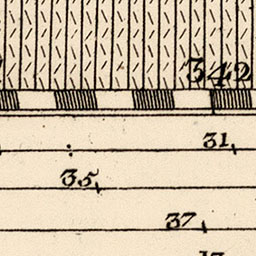 342
31,
35,
37,